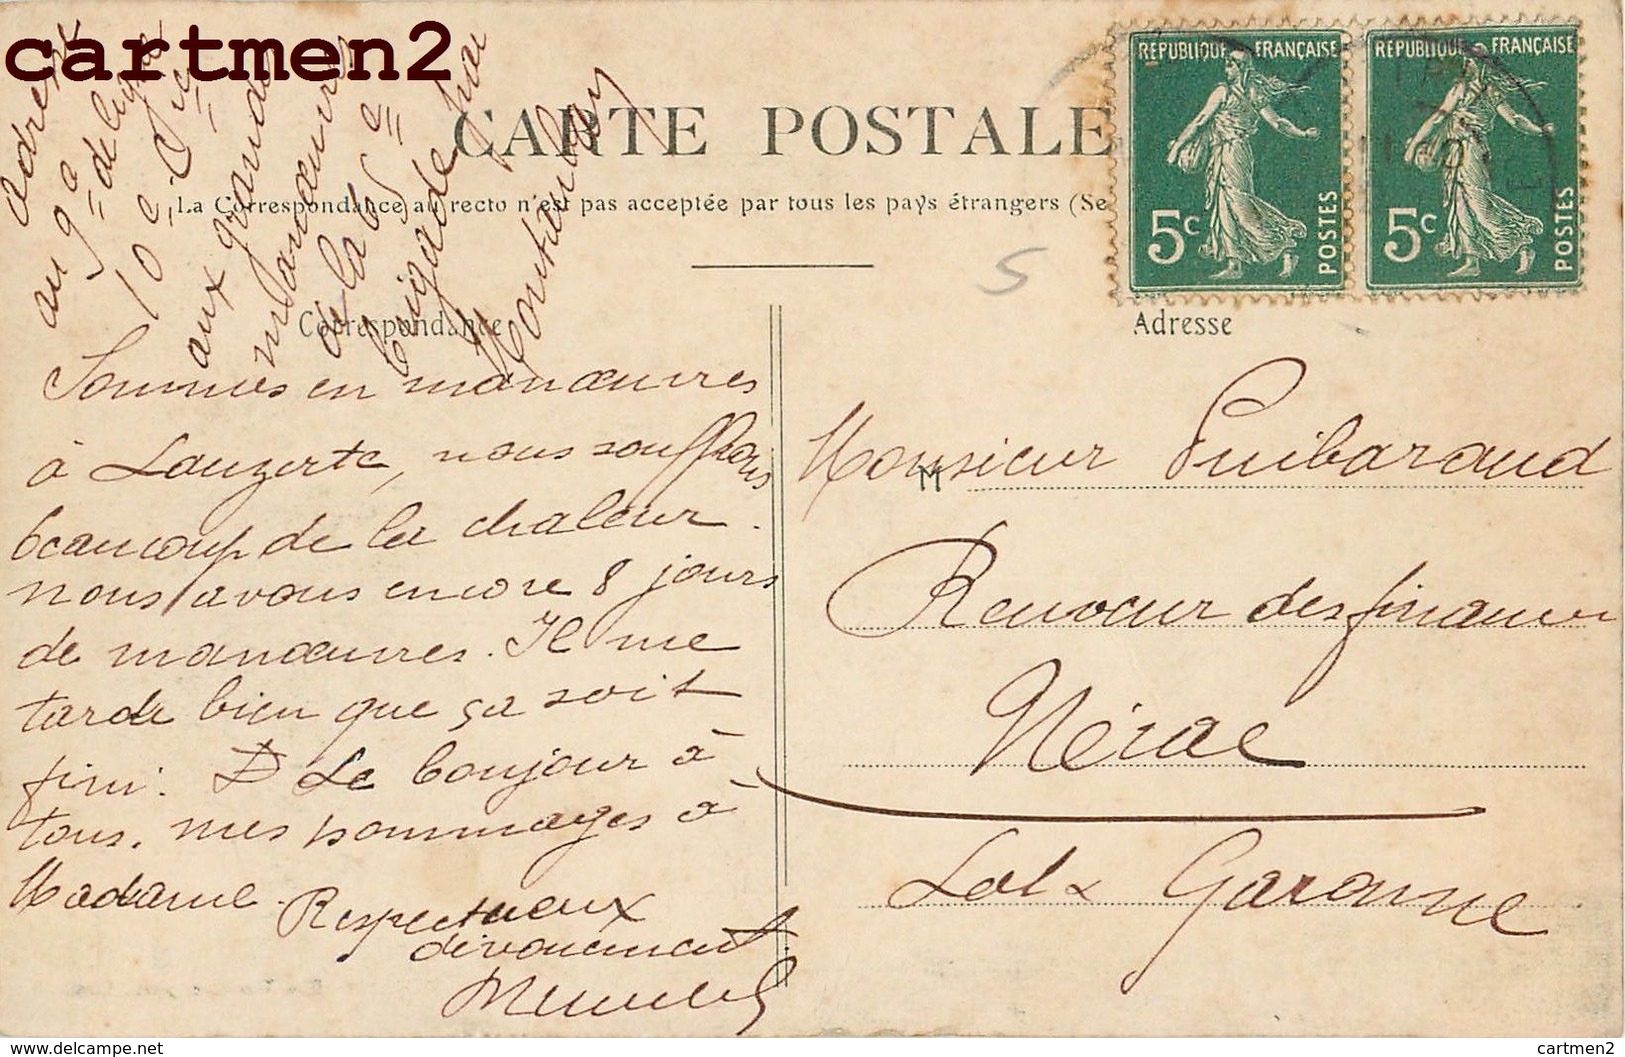 cartmen2
REPUBLIQUE FRANÇAISE
5c
POSTES
REPUBLIQUE FRANÇAISE
5c
POSTES
CARTE POSTALE
La Correspondance au recto n'est pas acceptée par tous les pays étrangers (Se
5
Correspondance
Adresse
adresse
au 9e de ligne
10e Cie
aux grandes
manœuvres
de la 65e
brigade par
Montauban
Sommes en manœuvres
à Lauzerte, nous souffrons
beaucoup de la chaleur.
nous avons encore 8 jours
de manœuvres. Il me
tarde bien que ça soit
fini. Le bonjour à
tous, mes hommages à
Madame.
Respectueux
dévouement
M
Monsieur Puibaraud
Receveur des finances
Nérac
Lot & Garonne
www.delcampe.net
cartmen2